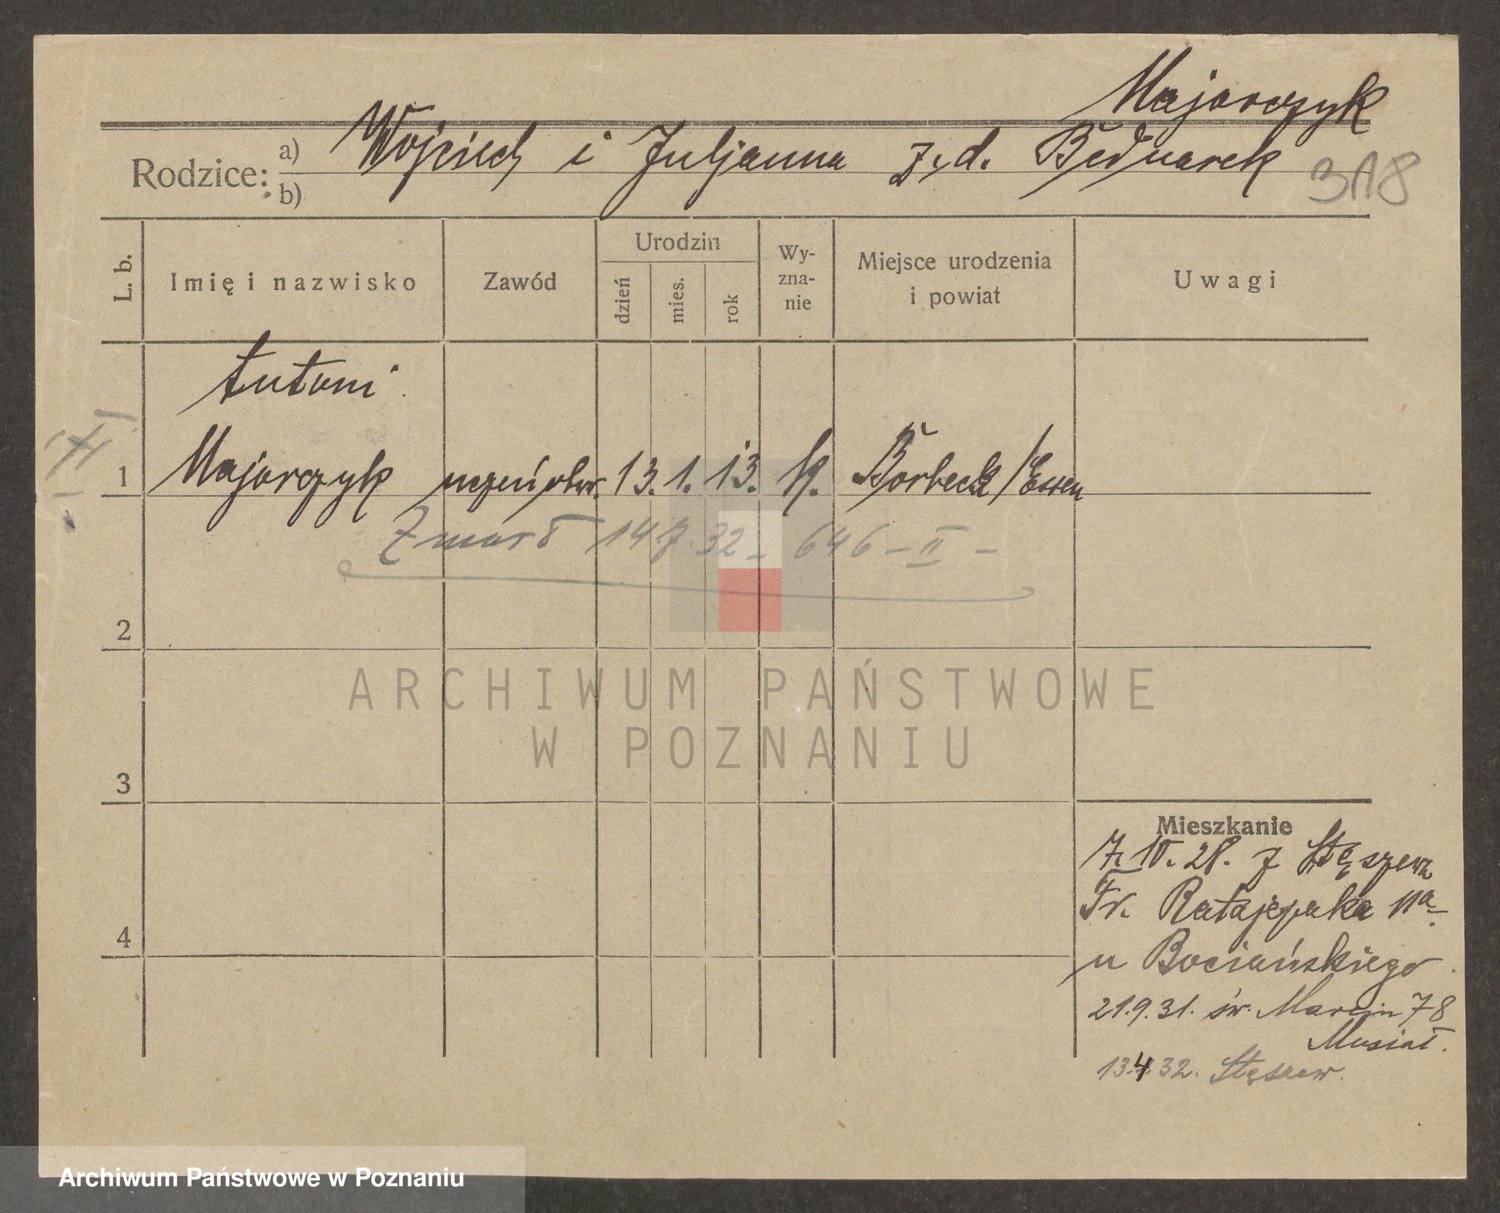 Majorczyk
Rodzice: a) Wojciech i Juljanna z. d. Bednarek
b)
L. b.
Imię i nazwisko
Zawód
Urodzin
dzień
mies.
rok
Wy-
zna-
nie
Miejsce urodzenia
i powiat
Uwagi
Antoni
1 Majorczyk uczeń 13. 1. 13. k. Borbeck/Essen
Zmarł 14.7.32 - 646 - II -
2
3
4
ARCHIWUM PAŃSTWOWE
W POZNANIU
Mieszkanie
7.10.28. z Stęszewa
Fr. Ratajczaka 11a
u Bociańskiego
21.9.31. św. Marcin 78
Musiał.
13.4.32. Stęszew.
Archiwum Państwowe w Poznaniu